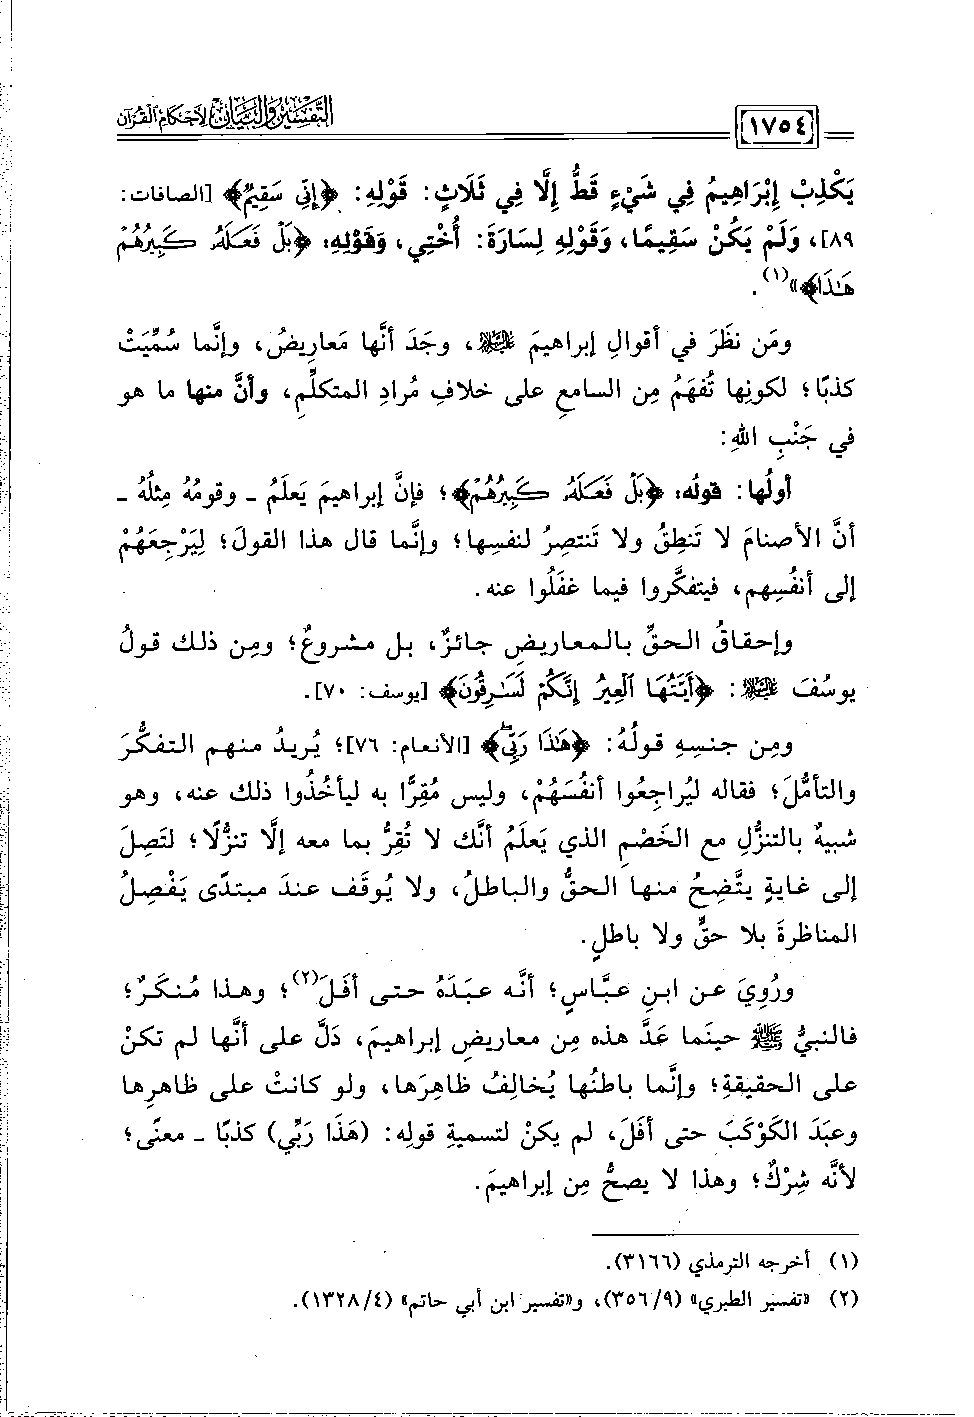 التفسير والبيان لأحكام القرآن
[١٧٥٤]
يَكْذِبْ إِبْرَاهِيمُ فِي شَيْءٍ قَطُّ إِلَّا فِي ثَلَاثٍ: قَوْلِهِ: ﴿إِنِّي سَقِيمٌ﴾ [الصافات:
٨٩]، وَلَمْ يَكُنْ سَقِيمًا، وَقَوْلِهِ لِسَارَةَ: أُخْتِي، وَقَوْلِهِ: ﴿بَلْ فَعَلَهُۥ كَبِيرُهُمْ
هَٰذَا﴾»(١).
ومَن نظَرَ في أقوالِ إبراهيمَ عليه السلام، وجَدَ أنَّها مَعارِيضُ، وإنَّما سُمِّيَتْ
كذبًا؛ لكونِها تُفهَمُ مِن السامعِ على خلافِ مُرادِ المتكلِّمِ، وأنَّ منها ما هو
في جَنْبِ اللهِ:
أولُها: قولُه: ﴿بَلْ فَعَلَهُۥ كَبِيرُهُمْ﴾؛ فإنَّ إبراهيمَ يَعلَمُ ـ وقومُهُ مِثلَهُ ـ
أنَّ الأصنامَ لا تَنطِقُ ولا تَنتصِرُ لنفسِها؛ وإنَّما قال هذا القولَ؛ لِيَرْجِعَهُمْ
إلى أنفُسِهم، فيتفكَّروا فيما غفَلُوا عنه.
وإحقاقُ الحقِّ بالمعاريضِ جائزٌ، بل مشروعٌ؛ ومِن ذلك قولُ
يوسُفَ عليه السلام: ﴿أَيَّتُهَا ٱلْعِيرُ إِنَّكُمْ لَسَٰرِقُونَ﴾ [يوسف: ٧٠].
ومِن جنسِهِ قولُهُ: ﴿هَٰذَا رَبِّي﴾ [الأنعام: ٧٦]؛ يُريدُ منهم التفكُّرَ
والتأمُّلَ؛ فقاله ليُراجِعُوا أنفُسَهُمْ، وليس مُقِرًّا به ليأخُذُوا ذلك عنه، وهو
شبيهٌ بالتنزُّلِ مع الخَصْمِ الذي يَعلَمُ أنَّك لا تُقِرُّ بما معه إلَّا تنزُّلًا؛ لتَصِلَ
إلى غايةٍ يتَّضِحُ منها الحقُّ والباطلُ، ولا يُوقَف عندَ مبتدًى يَفْصِلُ
المناظرةَ بلا حقٍّ ولا باطلٍ.
ورُوِيَ عن ابنِ عبَّاسٍ؛ أنَّه عبَدَهُ حتى أفَلَ(٢)؛ وهذا مُنكَرٌ؛
فالنبيُّ ﷺ حينَما عَدَّ هذه مِن معاريضِ إبراهيمَ، دَلَّ على أنَّها لم تكنْ
على الحقيقةِ؛ وإنَّما باطنُها يُخالِفُ ظاهِرَها، ولو كانتْ على ظاهرِها
وعبَدَ الكَوْكَبَ حتى أفَلَ، لم يكنْ لتسميةِ قولِه: (هَذَا رَبِّي) كذبًا ـ معنًى؛
لأنَّه شِرْكٌ؛ وهذا لا يصحُّ مِن إبراهيمَ.
(١) أخرجه الترمذي (٣١٦٦).
(٢) «تفسير الطبري» (٣٥٦/٩)، و«تفسير ابن أبي حاتم» (١٣٢٨/٤).